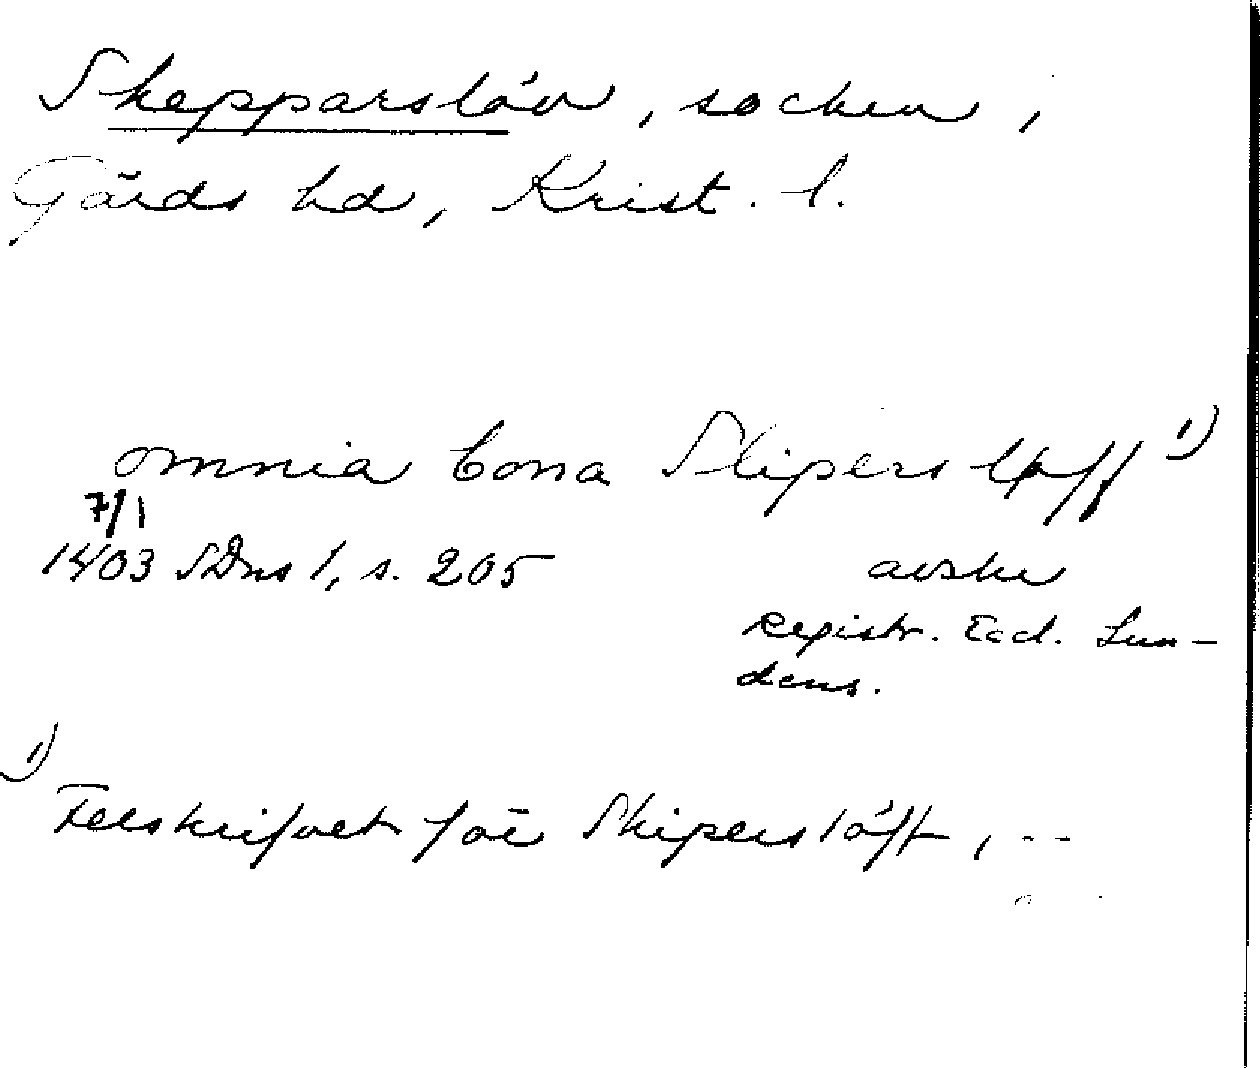 Skepparslöv, socken,
Gärds hd, Krist. l.
omnia bona Skipersløff 1)
7/1
1403 SDns 1, s. 205 avskr
Registr. Eccl. Lun-
dens.
1) Felskrifvet för Skiperslöff, --